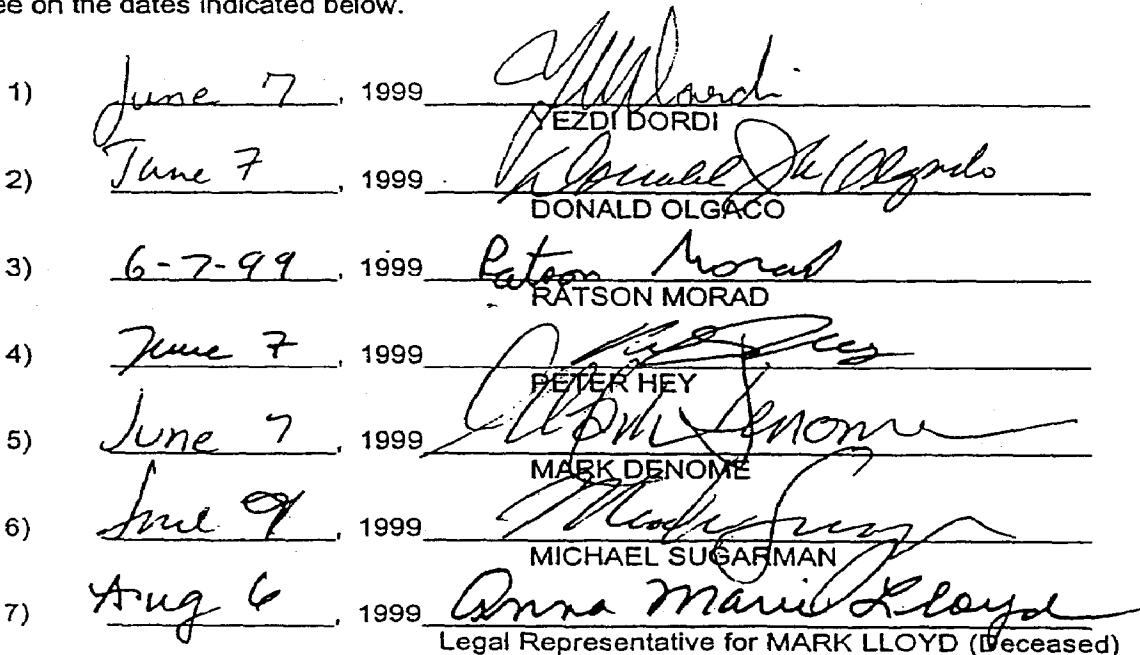 ee on the dates indicated below.
1) June 7, 1999
YEZDI DORDI
2) June 7, 1999
DONALD OLGACO
3) 6-7-99, 1999 Ratson Morad
RATSON MORAD
4) June 7, 1999
PETER HEY
5) June 7, 1999 Mark Denome
MARK DENOME
6) June 9, 1999
MICHAEL SUGARMAN
7) Aug 6, 1999 Anna Marie Lloyd
Legal Representative for MARK LLOYD (Deceased)